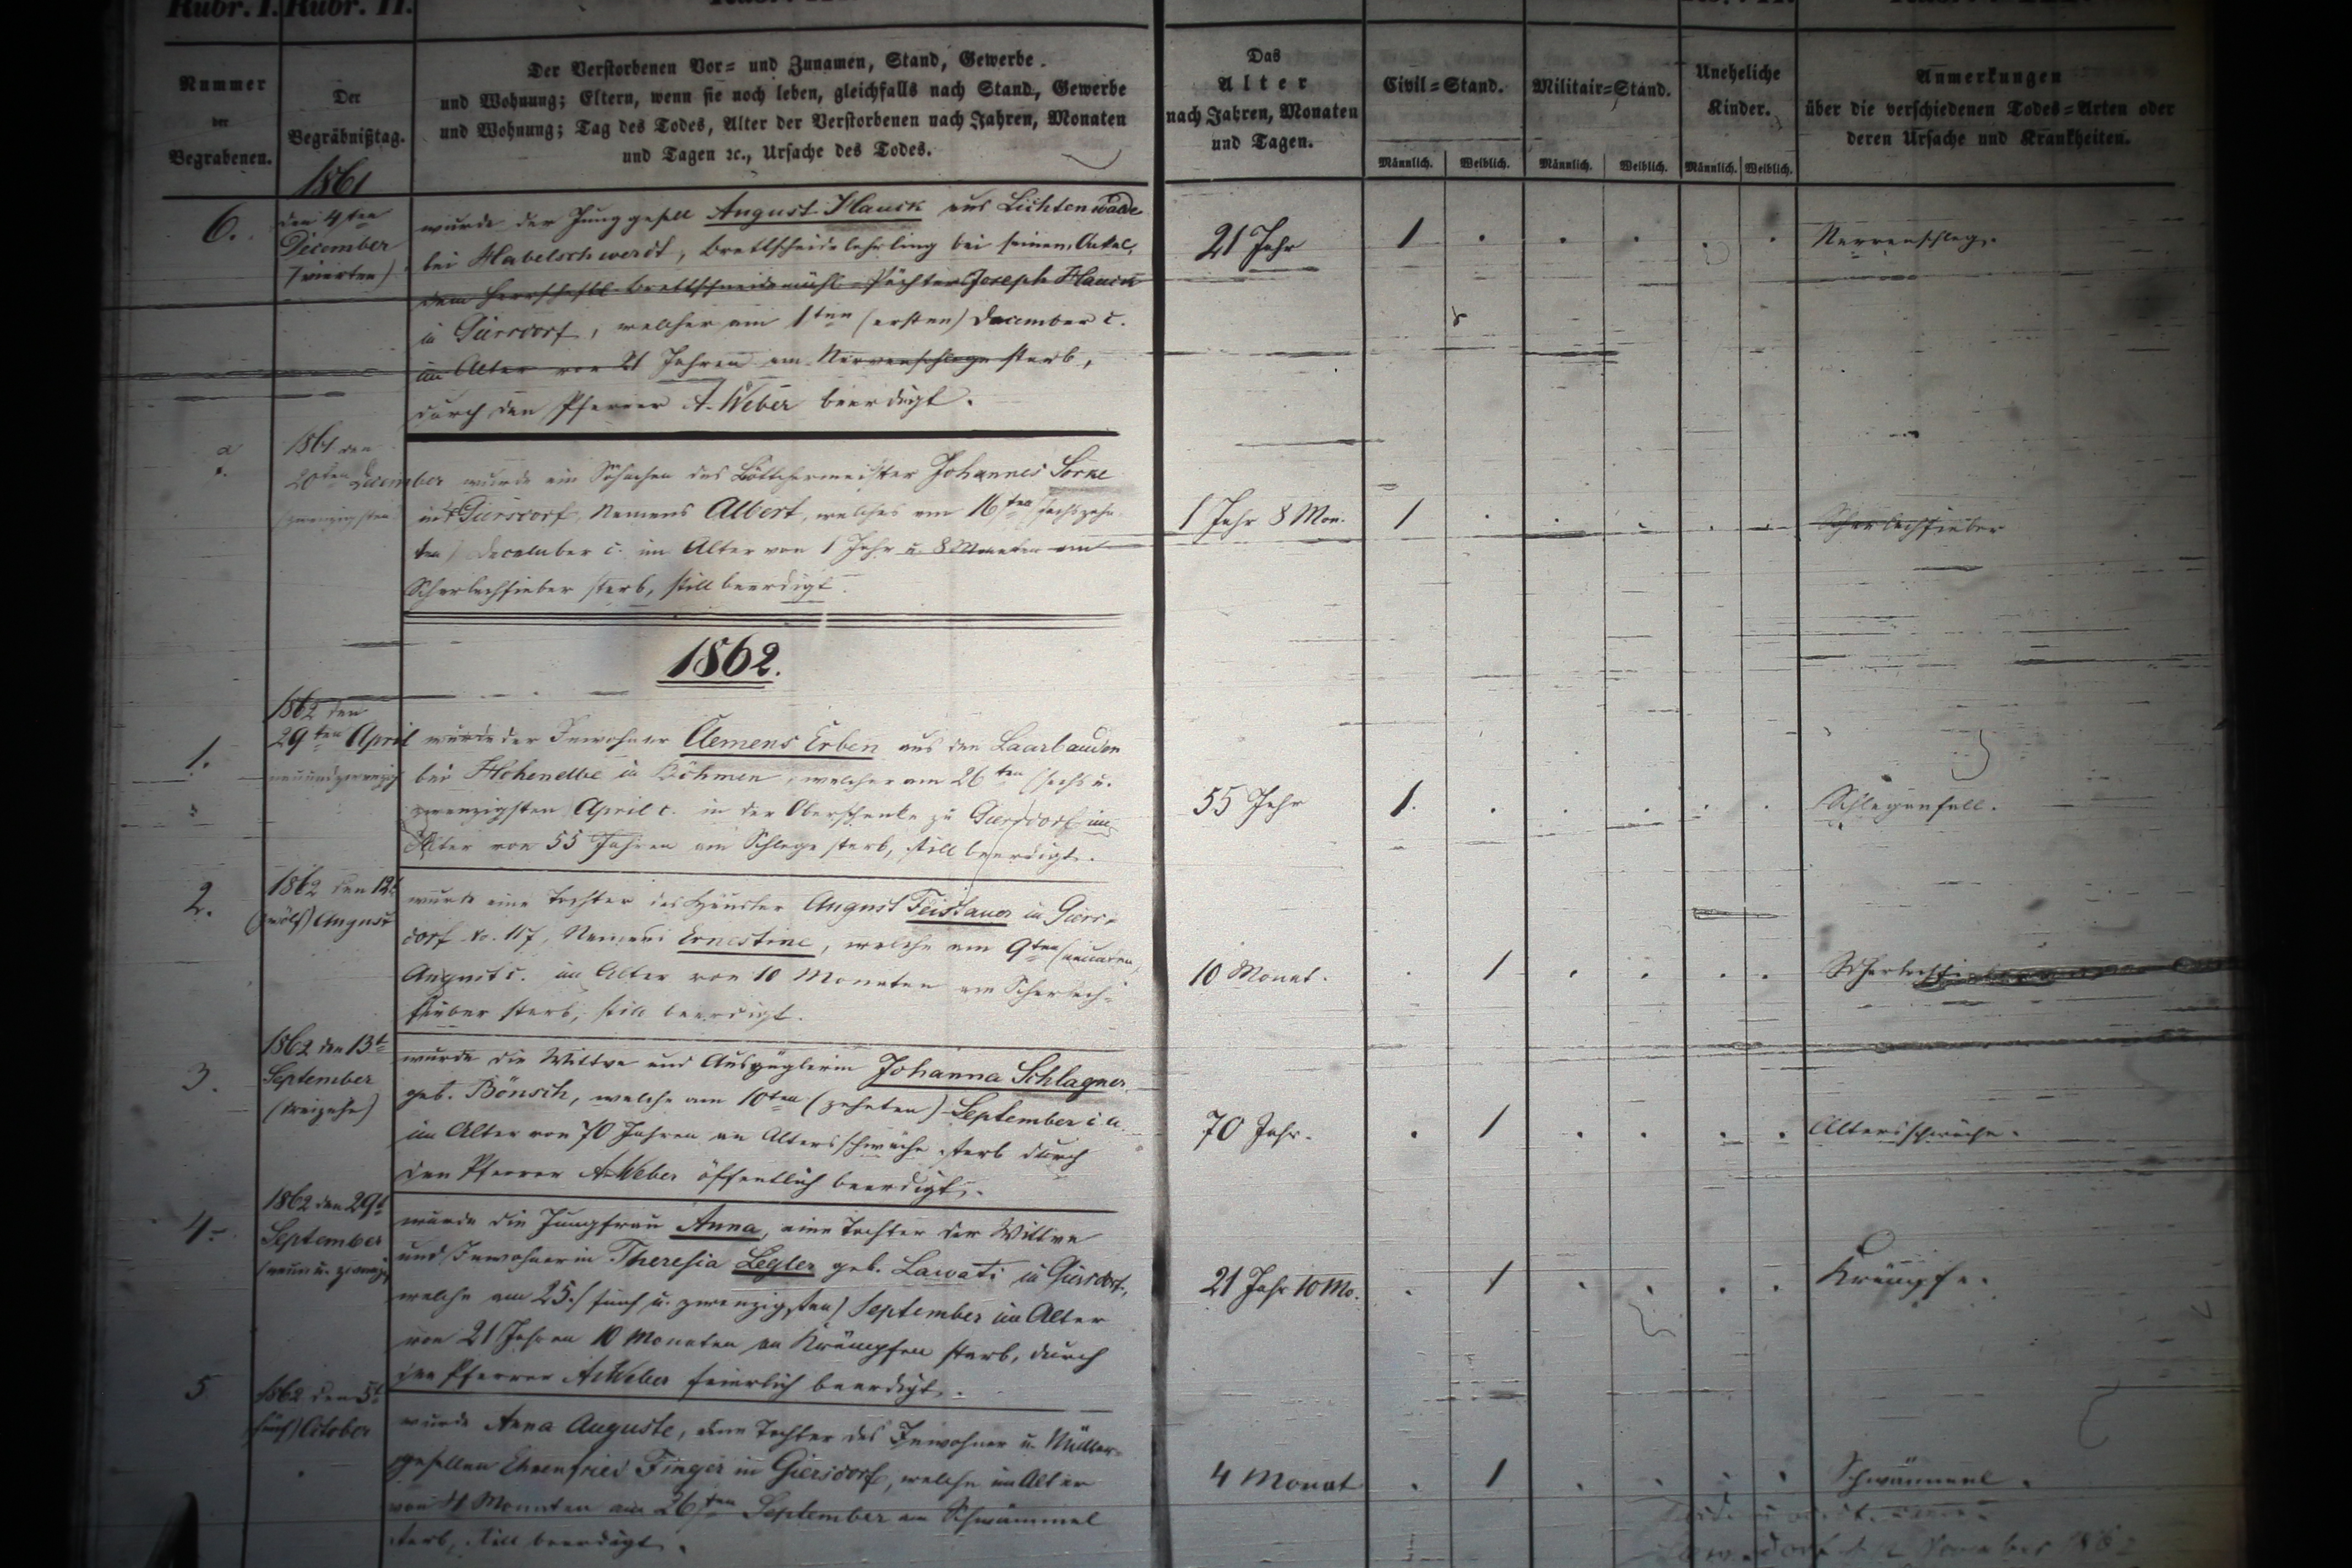 Rubr. I. Rubr. II.
Nummer
der
Begrabenen.
Der
Begräbnißtag.
Der Verstorbenen Vor= und Zunamen, Stand, Gewerbe
und Wohnung; Eltern, wenn sie noch leben, gleichfalls nach Stand, Gewerbe
und Wohnung; Tag des Todes, Alter der Verstorbenen nach Jahren, Monaten
und Tagen ꝛc., Ursache des Todes.
Das
Alter
nach Jahren, Monaten
und Tagen.
Civil=Stand.
Männlich. Weiblich.
Militair=Stand.
Männlich. Weiblich.
Uneheliche
Kinder.
Männlich. Weiblich.
Anmerkungen
über die verschiedenen Todes=Arten oder
deren Ursache und Krankheiten.
1861
6.
den 4ten
December
(vierten)
wurde der Junggesell August Hauck aus Lichtenwalde
bei Habelschwerdt, Brettschneidelehrling bei seinem Onkel,
dem herrschaftl. Brettschneidemühl-Pächter Joseph Hauck
in Giersdorf, welcher am 1ten (ersten) December c.
im Alter von 21 Jahren am Nervenschlage starb,
durch den Pfarrer A. Weber beerdigt.
21 Jahr
1
Nervenschlag.
1861 den
20ten December
(zwanzigsten
wurde ein Söhnchen des Böttchermeister Johannes Sorke
in Giersdorf, Namens Albert, welches am 16ten (sechszehn
ten) December c. im Alter von 1 Jahr u. 8 Monaten am
Scharlachfieber starb, still beerdigt.
1 Jahr 8 Mon.
1
Scharlachfieber
1862.
1.
1862 den
29ten April
neunundzwanzig
wurde der Inwohner Clemens Erben aus den Laarbauden
bei Hohenelbe in Böhmen, welcher am 26ten (sechs u.
zwanzigsten) April c. in der Oberschenke zu Giersdorf im
Alter von 55 Jahren am Schlage starb, still beerdigt.
55 Jahr
1.
Schlaganfall.
2.
1862 den 12t
(zwölf) August
wurde eine Tochter des Häusler August Feistauer in Giers-
dorf No. 117, Namens Ernestine, welche am 9ten (neunten)
August c. im Alter von 10 Monaten am Scharlach-
fieber starb, still beerdigt.
10 Monat.
1
3.
1862 den 13t
September
(dreizehn)
wurde die Wittwe und Auszüglerin Johanna Schlagner
geb. Bönsch, welche am 10ten (zehnten) September c. a.
im Alter von 70 Jahren an Altersschwäche starb durch
den Pfarrer A. Weber öffentlich beerdigt.
70 Jahr.
1
Altersschwäche.
4.
1862 den 29t
September
(neun u. zwanzig
wurde die Jungfrau Anna, eine Tochter der Wittwe
und Inwohnerin Theresia Legler geb. Lawati in Giersdorf,
welche am 25. (fünf u. zwanzigsten) September im Alter
von 21 Jahren 10 Monaten an Krämpfen starb, durch
den Pfarrer A. Weber feierlich beerdigt.
21 Jahr 10 Mo.
1
Krämpfe.
5
1862 den 5t
(fünf) October
wurde Anna Auguste, eine Tochter des Inwohner u. Müller-
gesellen Ehrenfried Finger in Giersdorf, welche im Alter
von 4 Monaten am 26ten September an Schwämmel
starb, still beerdigt.
4 Monat
1
Schwämmel.